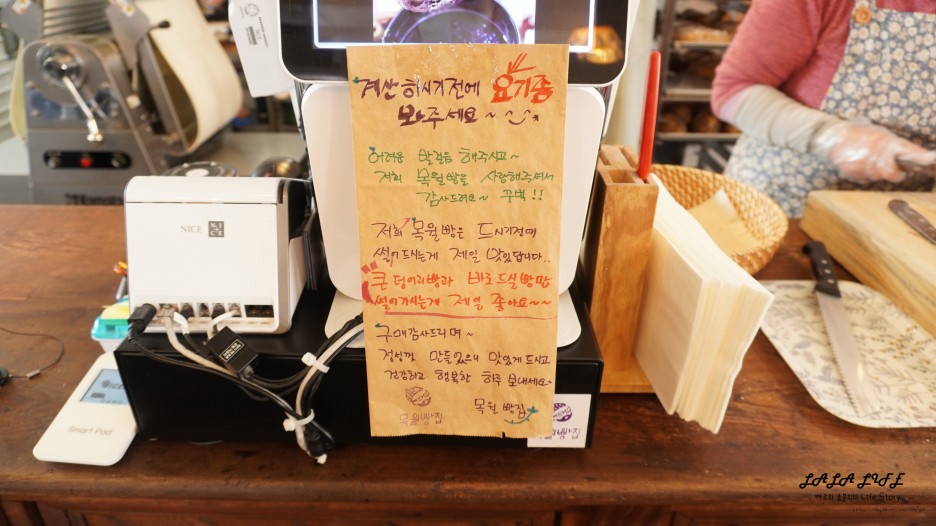 계산하시기전에 요기좀
봐주세요~
어려운 발걸음 해주시고~
저희 목월빵을 사랑해주셔서
감사드려요~ 꾸벅!!
저희 목월빵은 드시기전에
썰어드시는게 제일 맛있답니다..
큰 덩어리빵과 바로 드실 빵만
썰어가시는게 제일 좋아요~~
구매감사드리며~
정성껏 만들었으니 맛있게 드시고
건강하고 행복한 하루 보내세요~
목월빵집
목월빵집
NICE
Smart Pad
LALA LIFE
Life Story